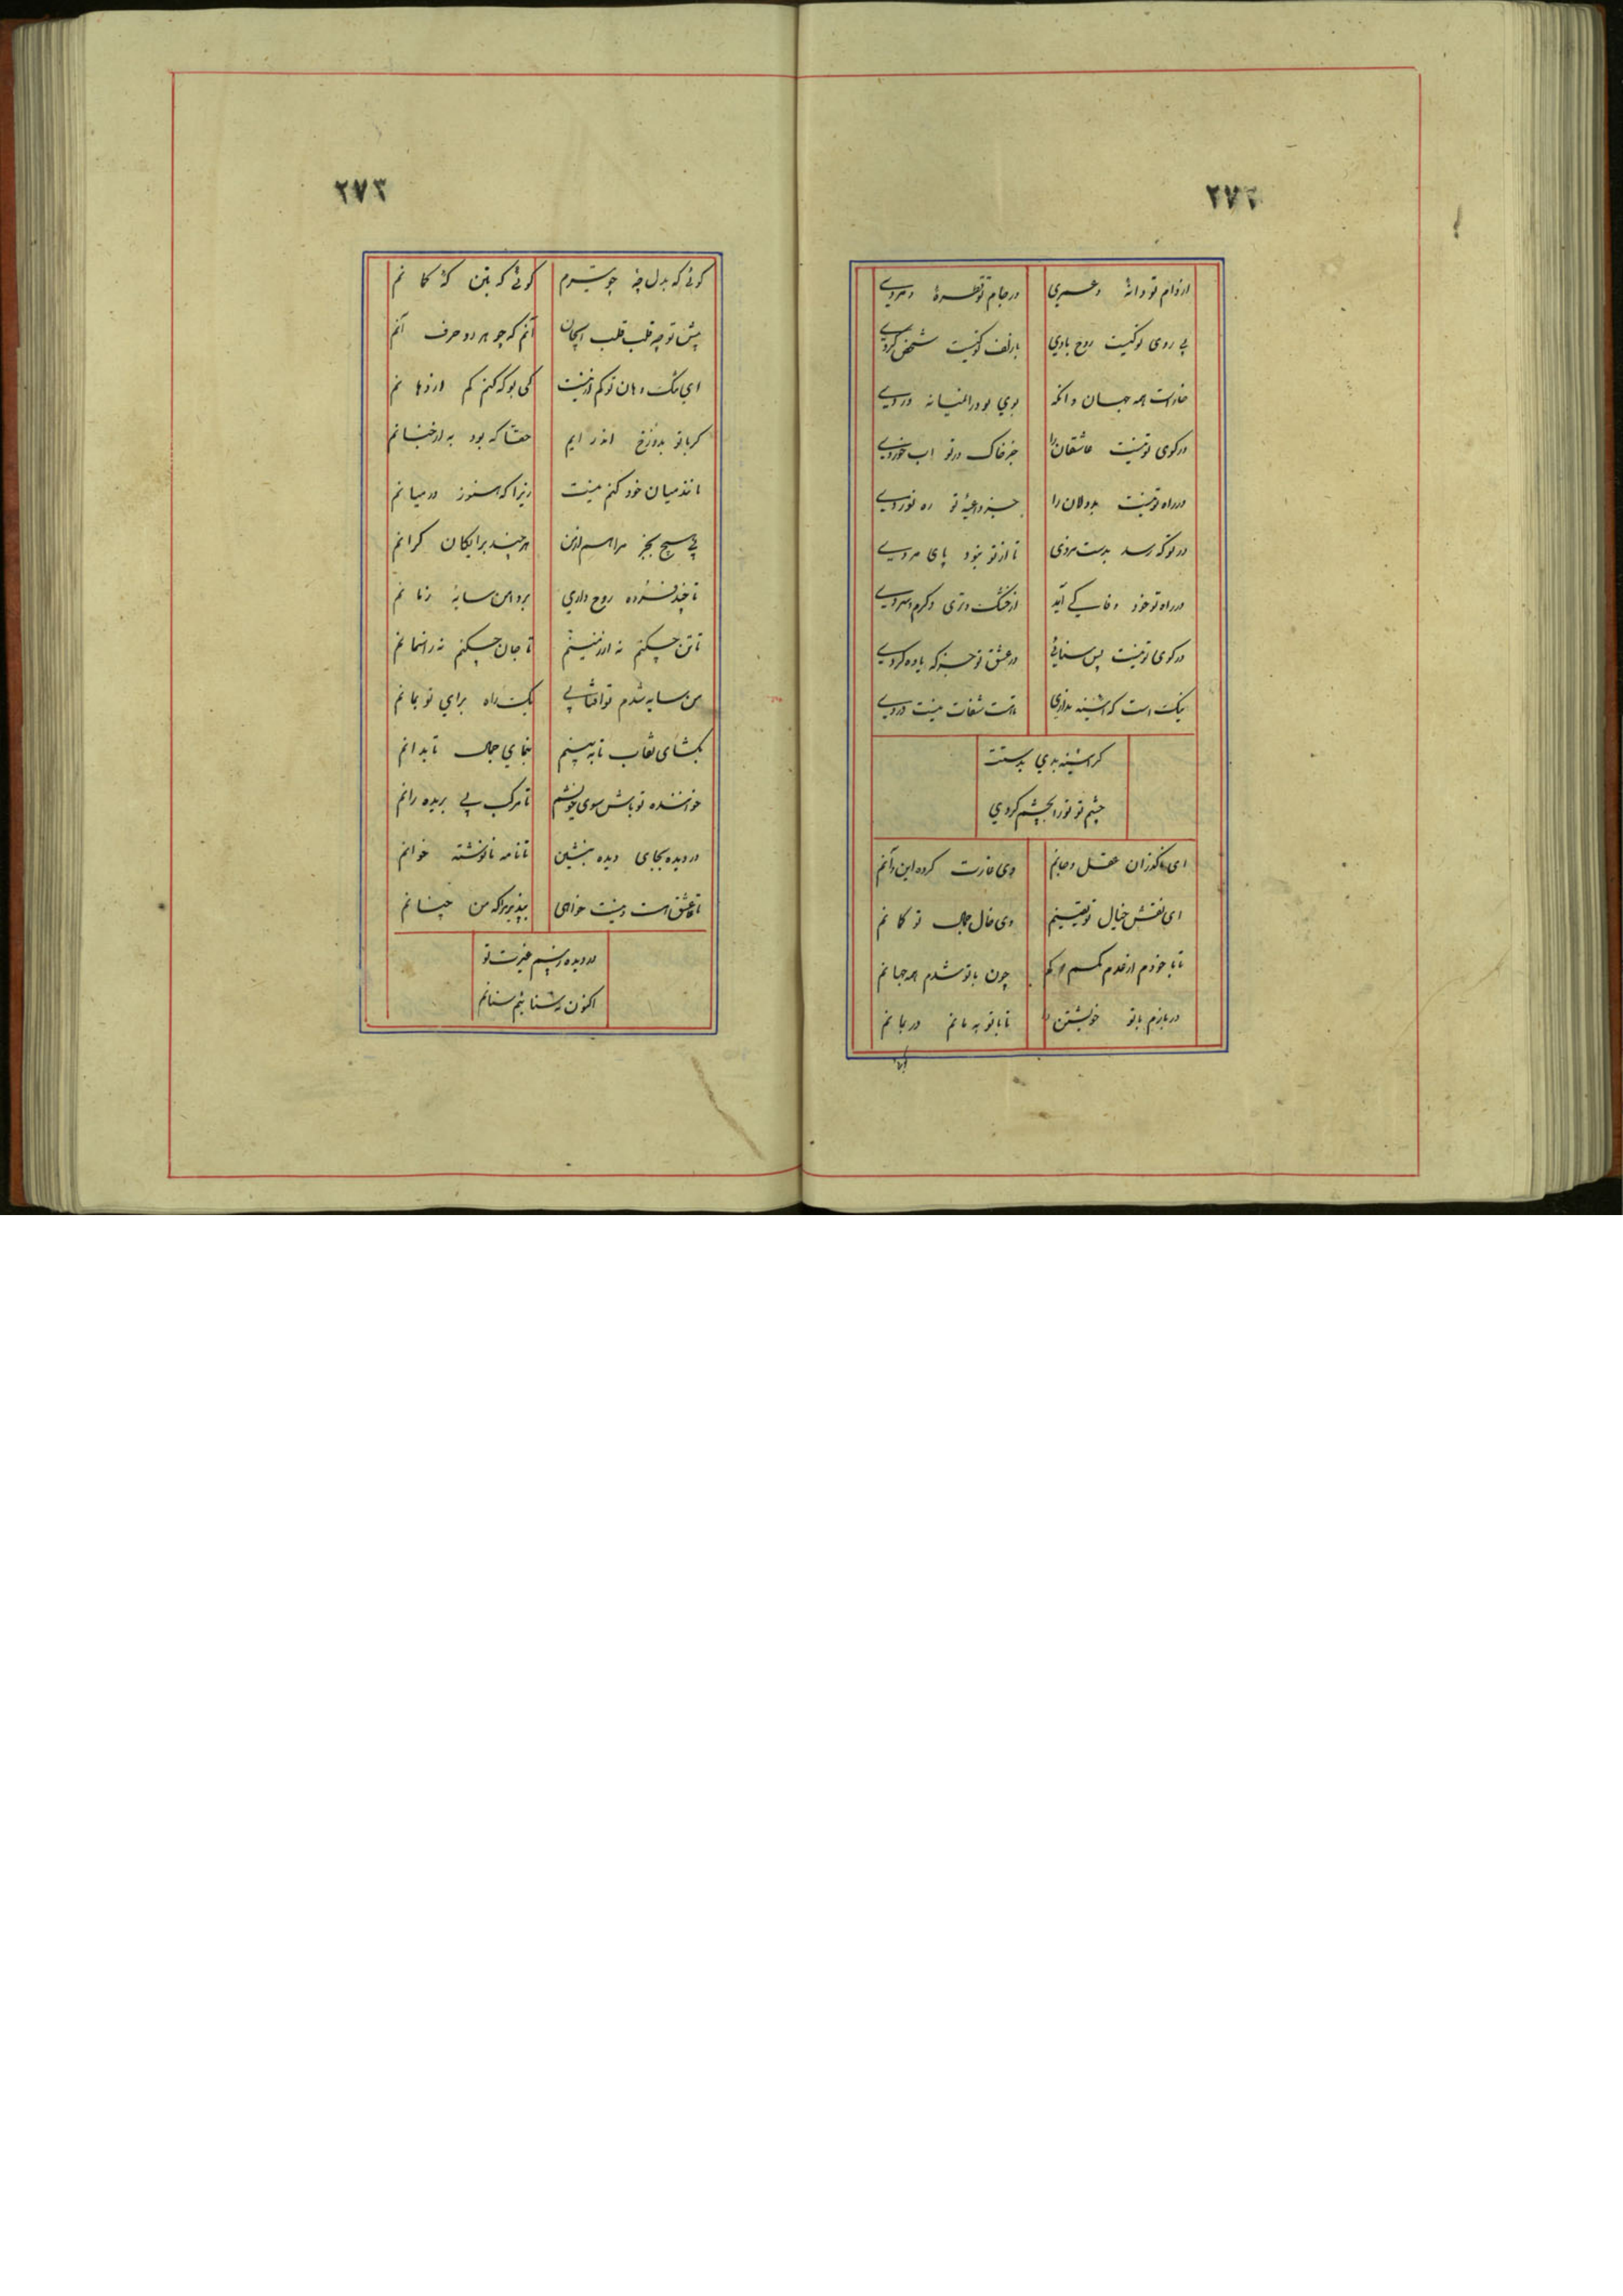 ۲۷۲
از دام تو دانهٔ و عسری در جام تو قطرهٔ و مردی
بی روی تو کیست روح بادی با زلف تو کیست شخص کردی
خارست همه جهان و انکه بوی تو در انمیانه وردی
در کوی تو نیست عاشقان را جز خاک در تو اب خوردی
در راه تو نیست بددلان را جز داعیهٔ تو ره نوردی
در تو که رسد بدست مردی تا از تو نبود پای مردی
در راه تو خود وفا کی آید از خشک و تری و کرم و سردی
در کوی تو نیست پس سنائی در عشق تو جز که یاوه کردی
نیک است که آینه نداری مات شفات نیست دردی
کر آینه بدی بدستت
چشم تو تو را بچشم کردی
ای ناکزران عقل و جانم وی غارت کرده این و آنم
ای نقش خیال تو یقینم وی خال جمال تو کمانم
تا با خودم از عدم کمم کم چون با تو شدم همه جهانم
در بازم با تو خویشتن را تا با تو به مانم در بمانم
۲۷۳
کوئی که بدل چه چو تیرم کوئی که بتن که کمانم
پیش تو چه قلب قلب ایجان آنم که چو هر دو حرف آنم
ای تنک دهان تو کم از نیست کی بو که کنم کم از زهانم
کر با تو بدوزخ اندر ایم حقا که بود به از جنانم
اندر میان خود کنم نیست زیرا که هنوز در میانم
بی هیچ بخر مرا هم از من هرچند برایکان کرانم
تا چند فسرده روح داری بر دامن سایه زمانم
تا تن چکنم نه از زمینم تا جان چکنم نه ز اسمانم
من سایه شدم تو افتابی یک راه برای تو بمانم
بکشای نقاب تا به بینم بنمای جمال تا بدانم
خواننده تو باش سوی خویشم تا مرکب پی بریده رانم
در دیده بجای دیده بنشین تا نامه نانوشته خوانم
تا عشق است نیست خواهی بپذیر مرا که من چنانم
در دیده ز بیم غیرت تو
اکنون نه سنائیم سنانم